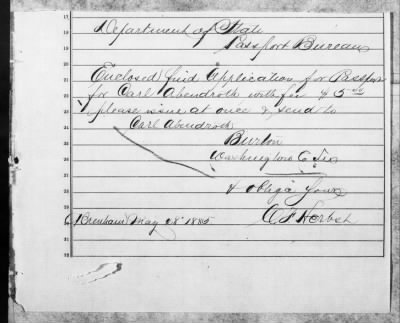 Department of State
Passport Bureau
Enclosed find Application for Passport
for Carl Abendroth with fee $5.00
please issue at once & send to
Carl Abendroth
Burton
Washington Co Tex
& oblige Yours
Brenham May 28 1885 C F Herbst